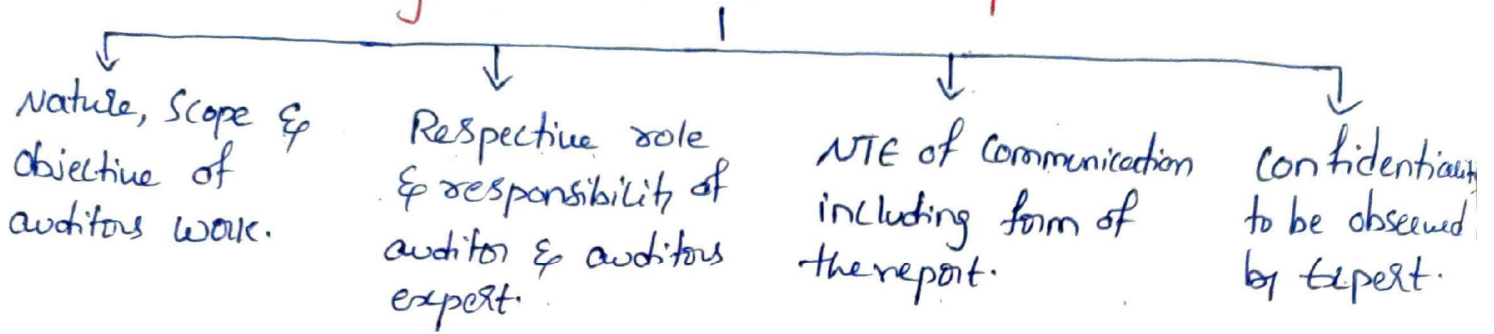 Nature, Scope &
Objective of
auditors work.
Respective role
& responsibility of
auditor & auditors
expert.
NTE of Communication
including form of
the report.
Confidentiality
to be observed
by Expert.